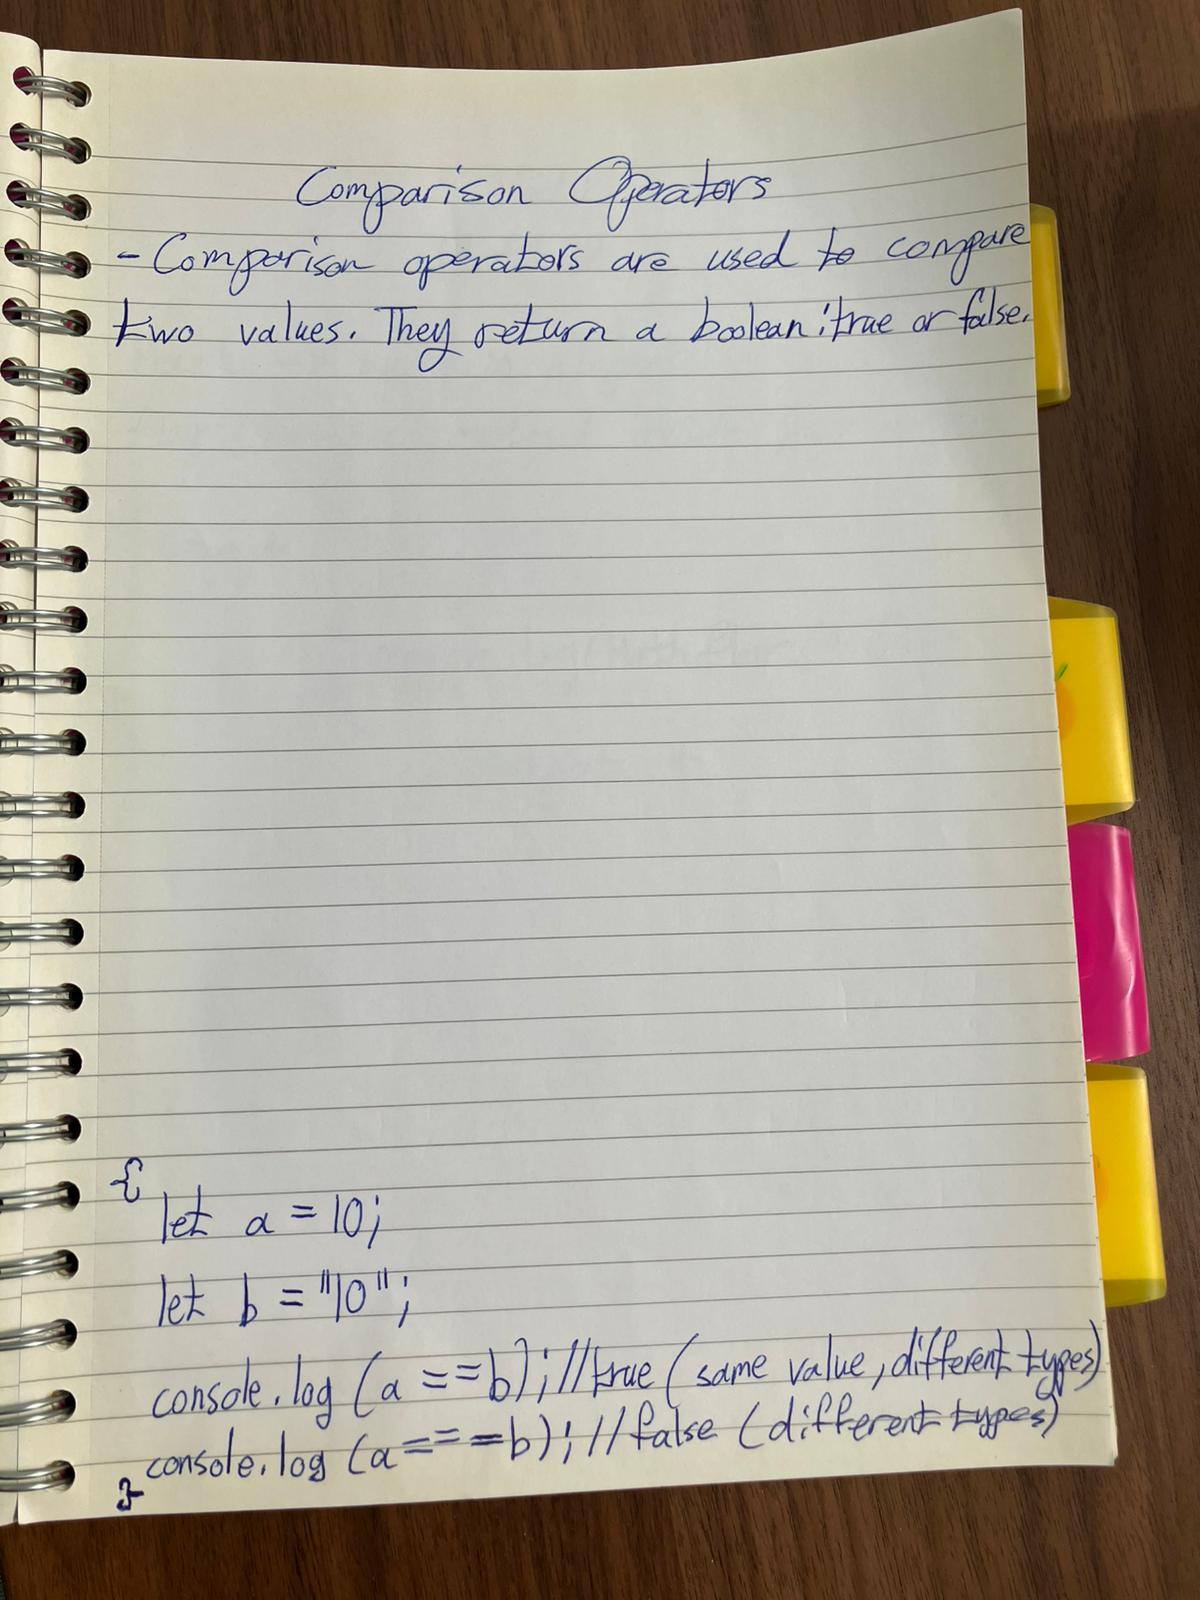 Comparison Operators
- Comparison operators are used to compare
two values. They return a boolean: true or false.
{
let a = 10;
let b = "10";
console.log (a ==b); //true (same value, different types)
console.log (a===b); //false (different types)
}